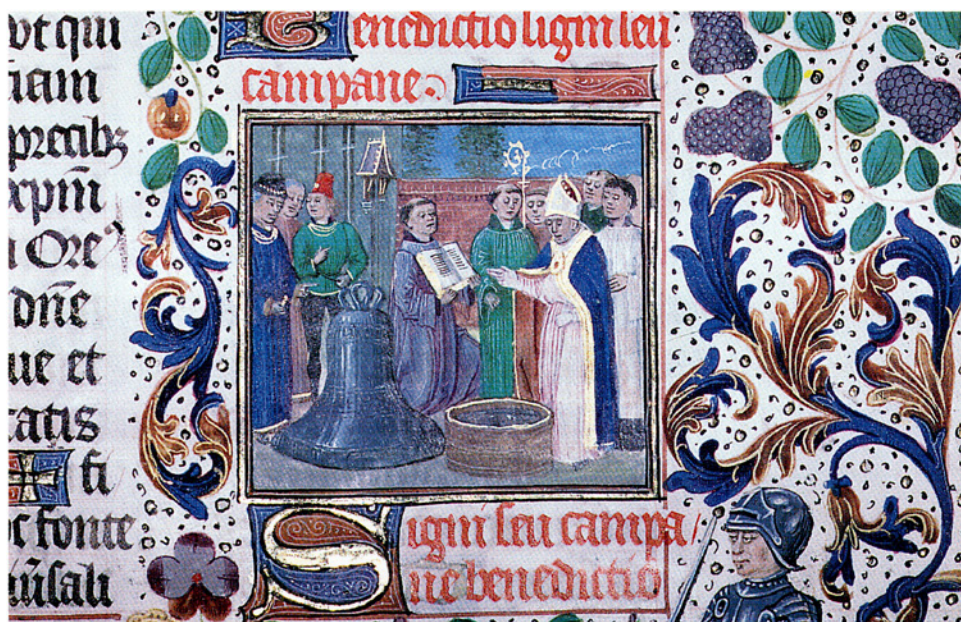 vt qui
precibꝫ
xpm̄
Ore
dn̄e
ue et
fi
c fonte
Benedictio signi seu
campane
Signi seu campa/
ne benedictio